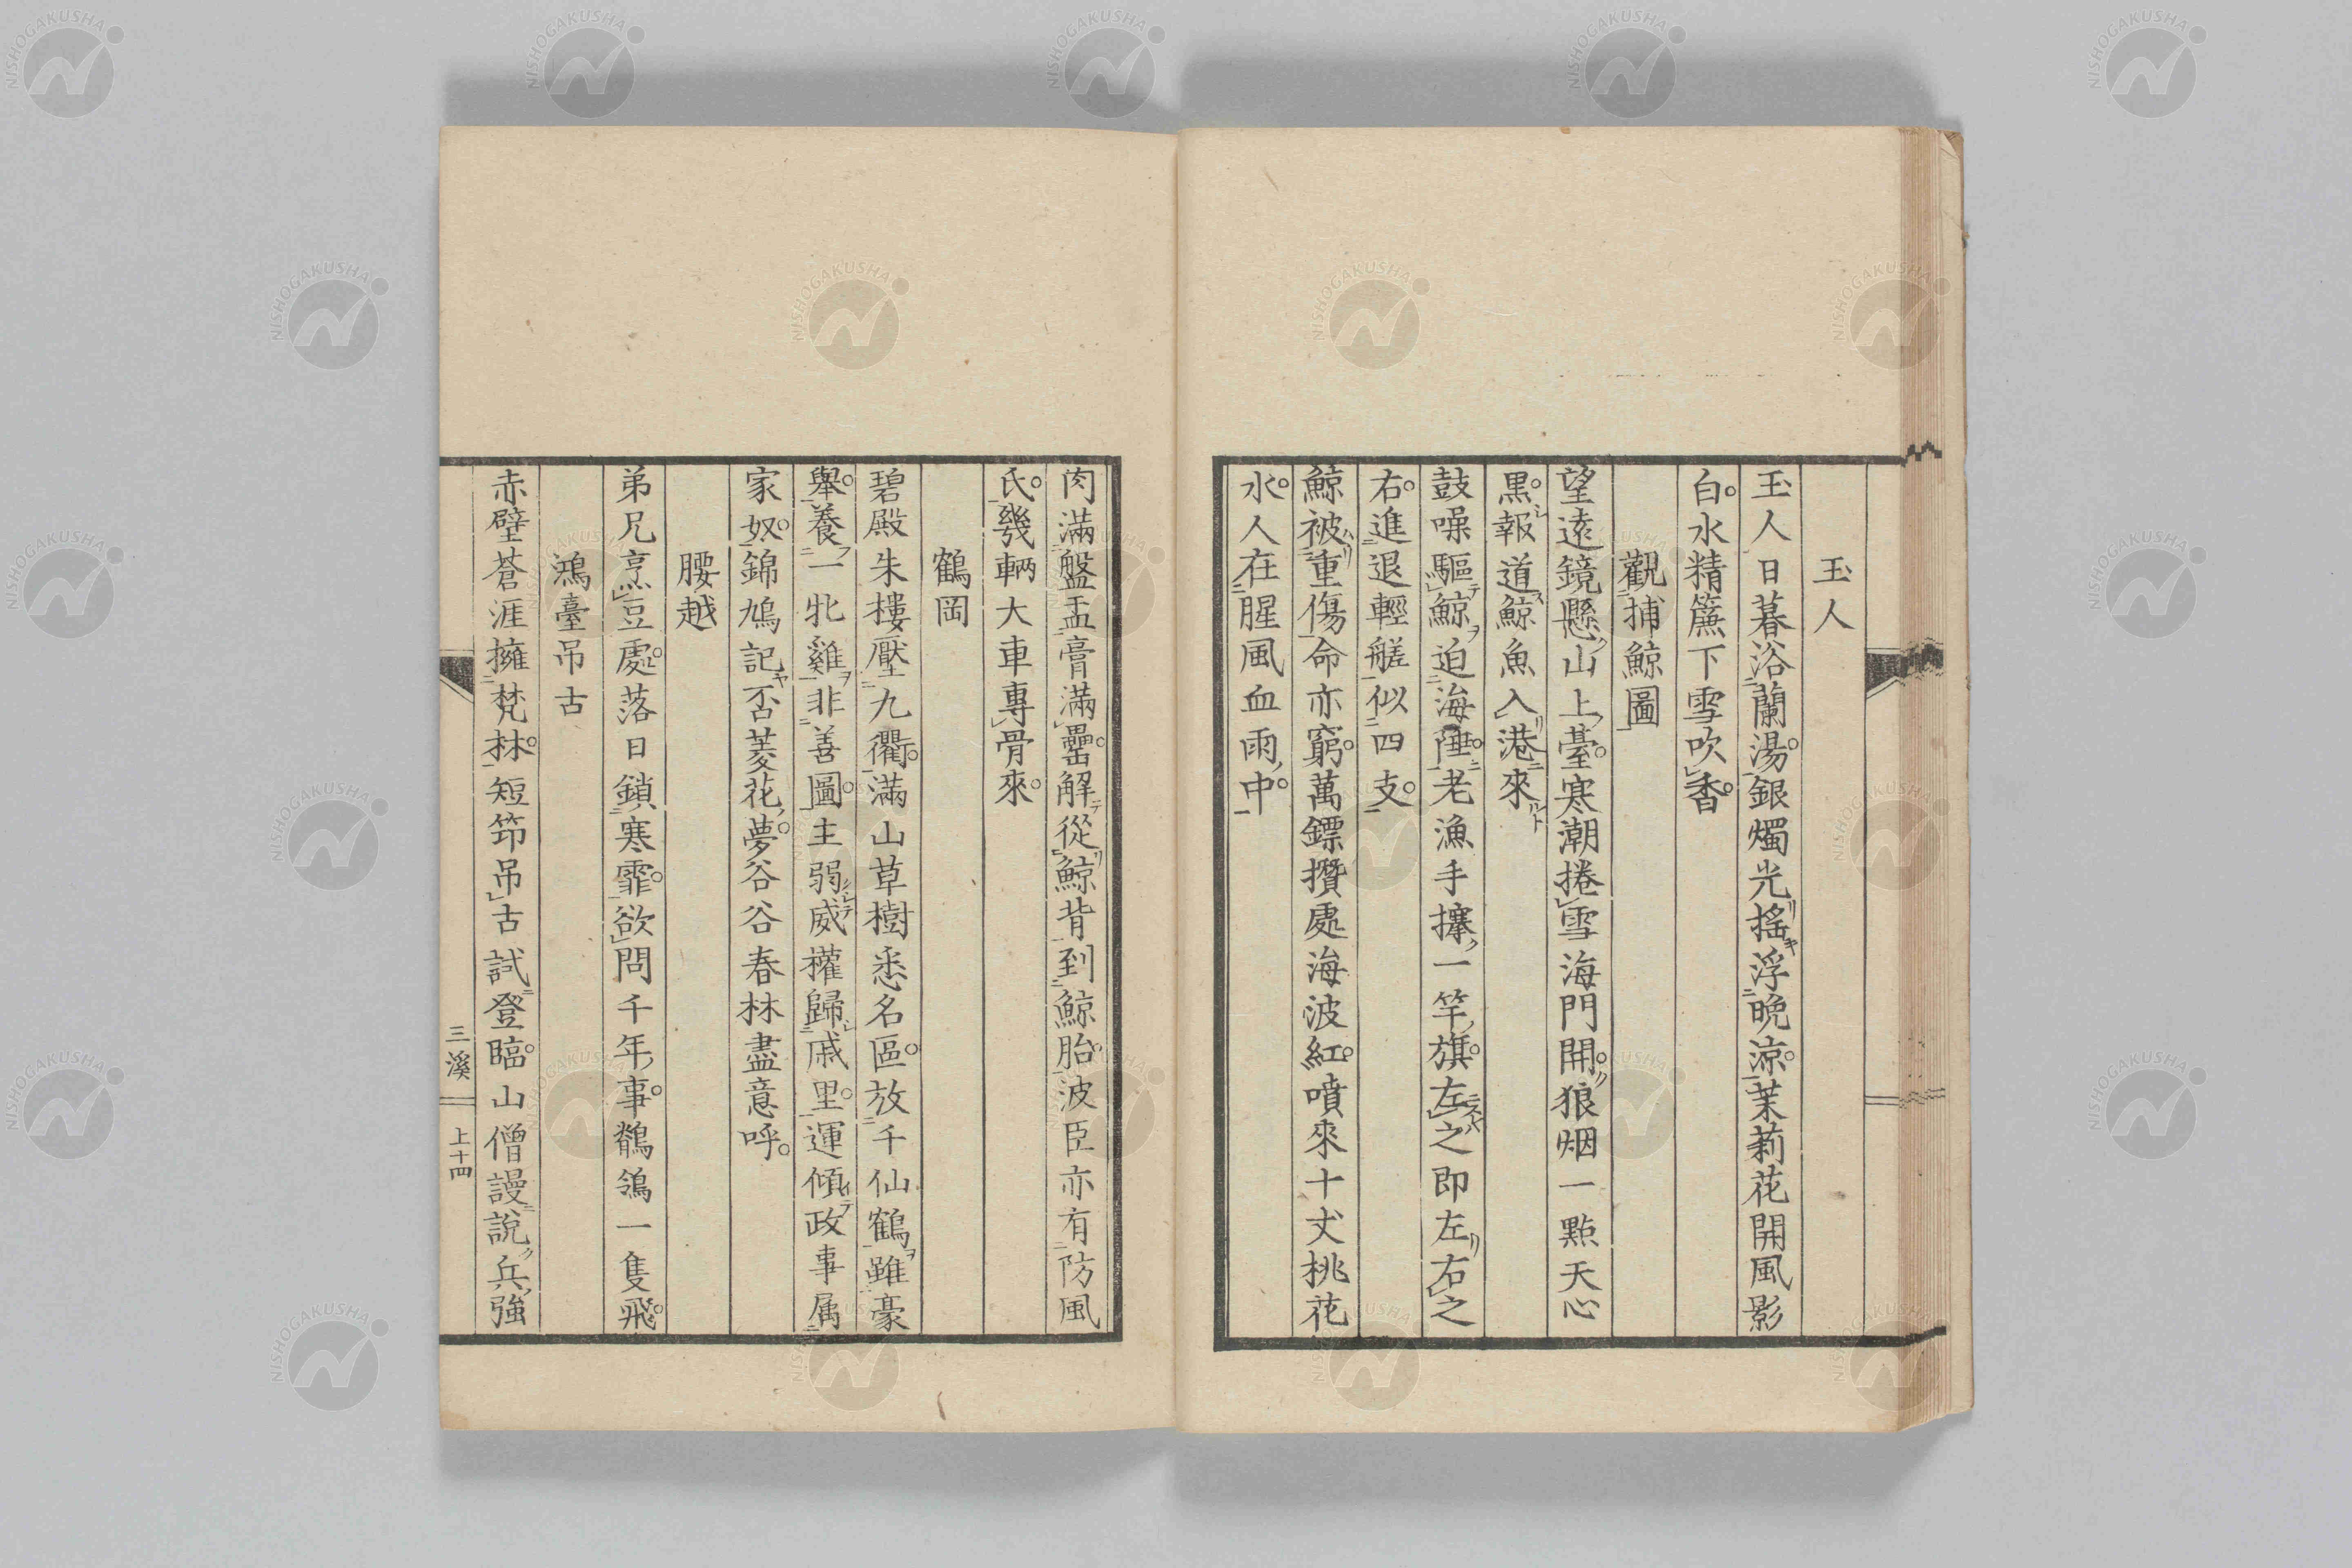 玉人
玉人日暮浴蘭湯。銀燭光搖浮晚涼。茉莉花開風影
白。水精簾下雪吹香。
觀捕鯨圖
望遠鏡懸山上臺。寒潮捲雪海門開。狼烟一點天心
黑。報道鯨魚入港來
鼓噪驅鯨迫海陲。老漁手攘一竿旗。左之即左右之
右。進退輕艖似四支。
鯨被重傷命亦窮。萬鏢攢處海波紅。噴來十丈桃花
水。人在腥風血雨中。
肉滿盤盂膏滿罍。解從鯨背到鯨胎。波臣亦有防風
氏。幾輛大車專骨來。
鶴岡
碧殿朱樓壓九衢。滿山草樹悉名區。放千仙鶴雖豪
舉。養一牝雞非善圖。主弱威權歸戚里。運傾政事属
家奴。錦鳩記否菱花夢。谷谷春林盡意呼。
腰越
弟兄烹豆處。落日鎖寒霏。欲問千年事。鶺鴒一隻飛。
鴻臺吊古
赤壁蒼涯擁梵林。短笻吊古試登臨。山僧謾說兵強
三溪
上十四
NISHOGAKUSHA